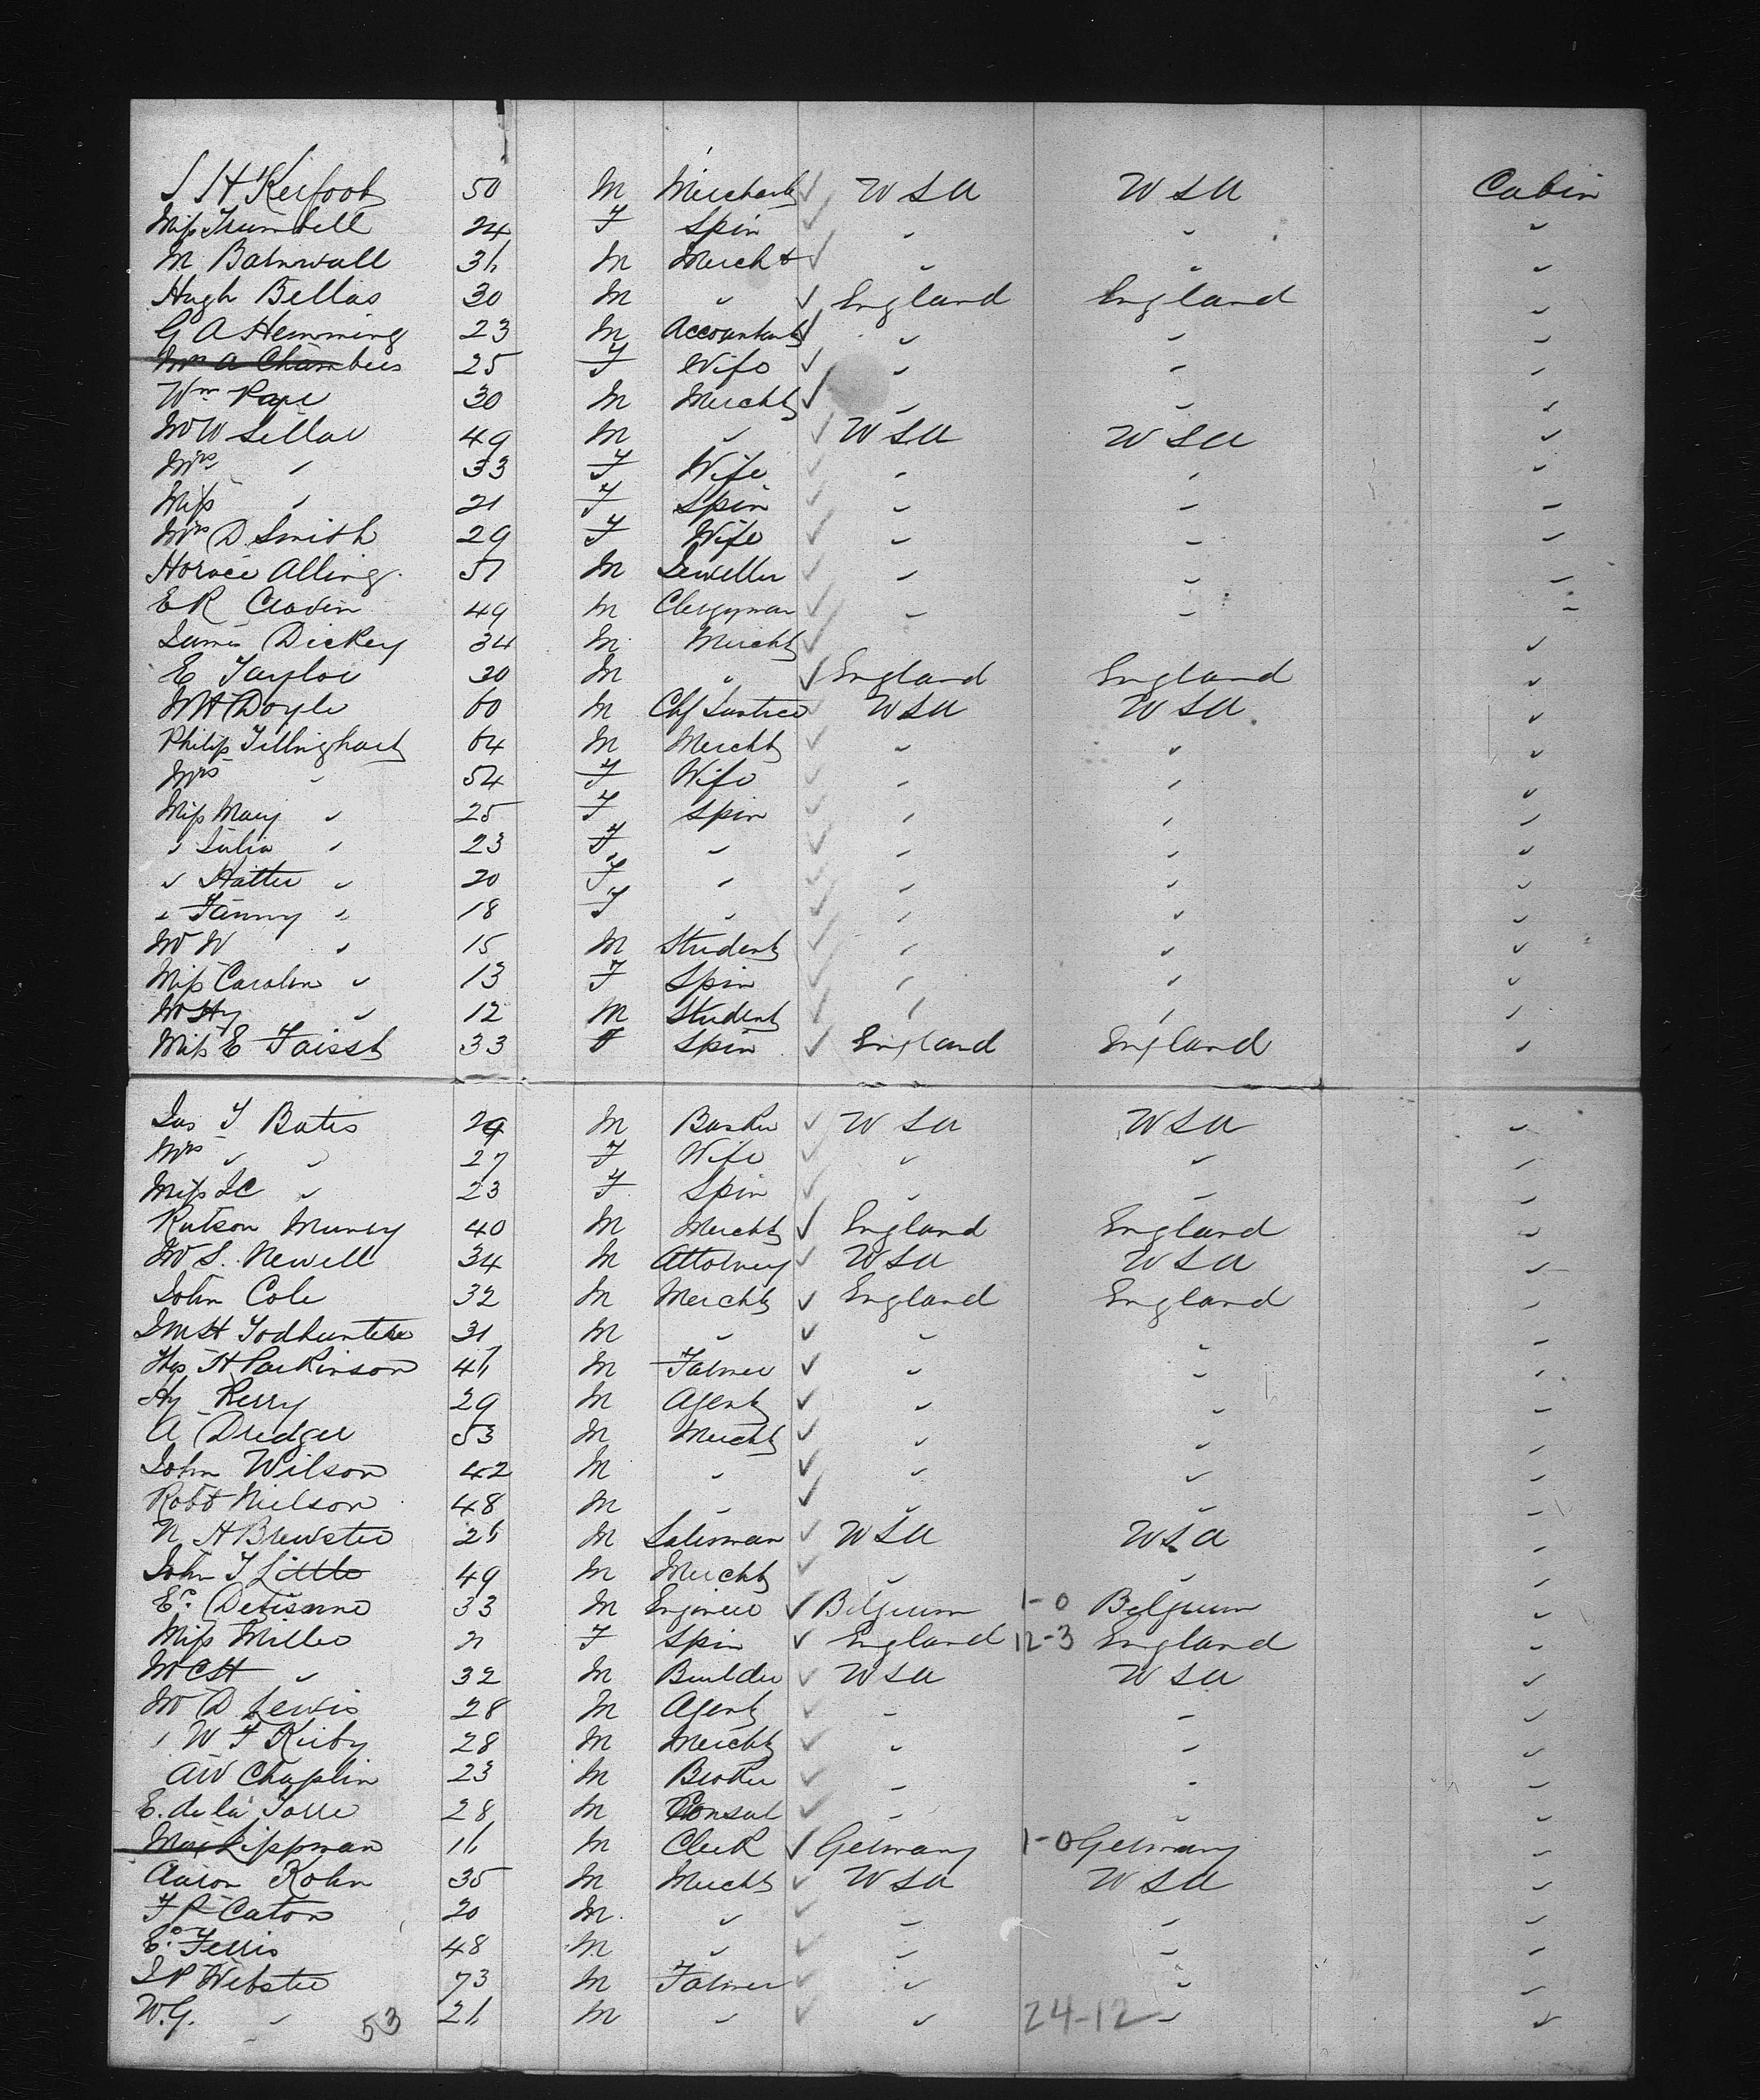 S H Kerfoot 50 M Merchant ✓ U S A U S A Cabin
Miss Trumbell 24 F Spin ✓ " " "
M Barnwall 36 M Mercht ✓ " " "
Hugh Bellas 30 M " ✓ England England "
G A Hemming 23 M Accountant ✓ " " "
Mrs A Chambers 25 F Wife ✓ " " "
Wm Pape 30 M Mercht ✓ " " "
Mr W Sellar 49 M " ✓ U S A U S A "
Mrs " 33 F Wife ✓ " " "
Miss " 21 F Spin ✓ " " "
Mrs D Smith 29 F Wife ✓ " " "
Horace Alling 57 M Jeweller ✓ " " "
E R Craven 49 M Clergyman ✓ " " "
James Dickey 34 M Mercht ✓ "
E Taylor 30 M " ✓ England England "
Mr H Doyle 60 M Chf Justice ✓ U S A U S A "
Philip Tillinghast 64 M Mercht ✓ " " "
Mrs " 54 F Wife ✓ " " "
Miss Mary " 25 F Spin ✓ " " "
" Julia " 23 F " ✓ " " "
" Hattie " 20 F " ✓ " " "
" Fanny " 18 F " ✓ " " "
Mr W " 15 M Student ✓ " " "
Miss Carolin " 13 F Spin ✓ " " "
Mr Hy " 12 M Student ✓ " " "
Miss E Faisst 33 F Spin ✓ England England "
Jas T Bates 29 M Banker ✓ U S A U S A "
Mrs " " 27 F Wife ✓ " " "
Miss J C " 23 F Spin ✓ " " "
Rutson Murray 40 M Mercht ✓ England England "
Mr S. Newell 34 M Attorney ✓ U S A U S A "
John Cole 32 M Mercht ✓ England England "
Todhunter 31 M " ✓ " " "
H Parkinson 46 M Farmer ✓ " " "
Hy Perry 29 M Agent ✓ " " "
A Dredger 53 M Mercht ✓ " " "
John Wilson 42 M " ✓ " " "
Robt Nielson 48 M " ✓ " " "
N H Brewster 26 M Salesman ✓ U S A U S A "
John T Little 49 M Mercht ✓ " " "
Ed. 33 M Engineer ✓ Belgium 1-0 Belgium "
Miss Miller 21 F Spin ✓ England 12-3 England "
Mr C H " 32 M Builder ✓ U S A U S A "
Mr D Lewis 28 M Agent ✓ " " "
" W F Kirby 28 M Mercht ✓ " " "
A W Chaplin 23 M Broker ✓ " " "
E. de la Torre 28 M Consul ✓ " " "
Max Lippman 16 M Clerk ✓ Germany 1-0 Germany "
Aaron Kohn 35 M Mercht ✓ U S A U S A "
F R Caton 20 M " ✓ " " "
Ed. Ferris 48 M " ✓ " " "
J P Webster 73 M Farmer ✓ " " "
W. G. " 53 26 M " ✓ " 24-12 " "